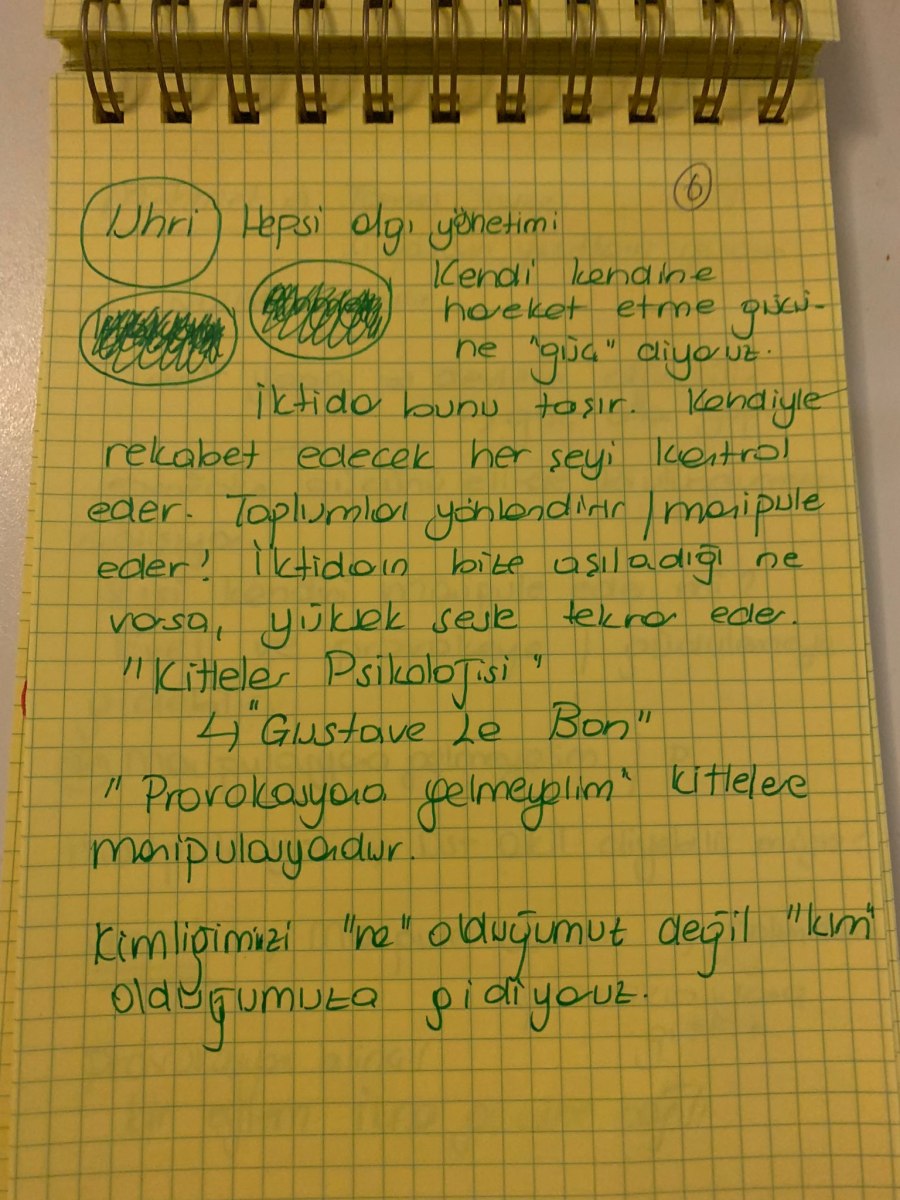 6
Uhri Hepsi algı yönetimi
Kendi kendine
hareket etme gücü-
ne "güç" diyoruz.
İktidar bunu taşır. Kendiyle
rekabet edecek her şeyi kontrol
eder. Toplumları yönlendirir / manipule
eder! İktidarın bize aşıladığı ne
varsa, yüksek sesle tekrar eder.
"Kitleler Psikolojisi"
↳ "Gustave Le Bon"
"Provokasyona gelmeyelim" kitlelere
manipulasyondur.
Kimliğimizi "ne" olduğumuz değil "kim"
olduğumuza gidiyoruz.